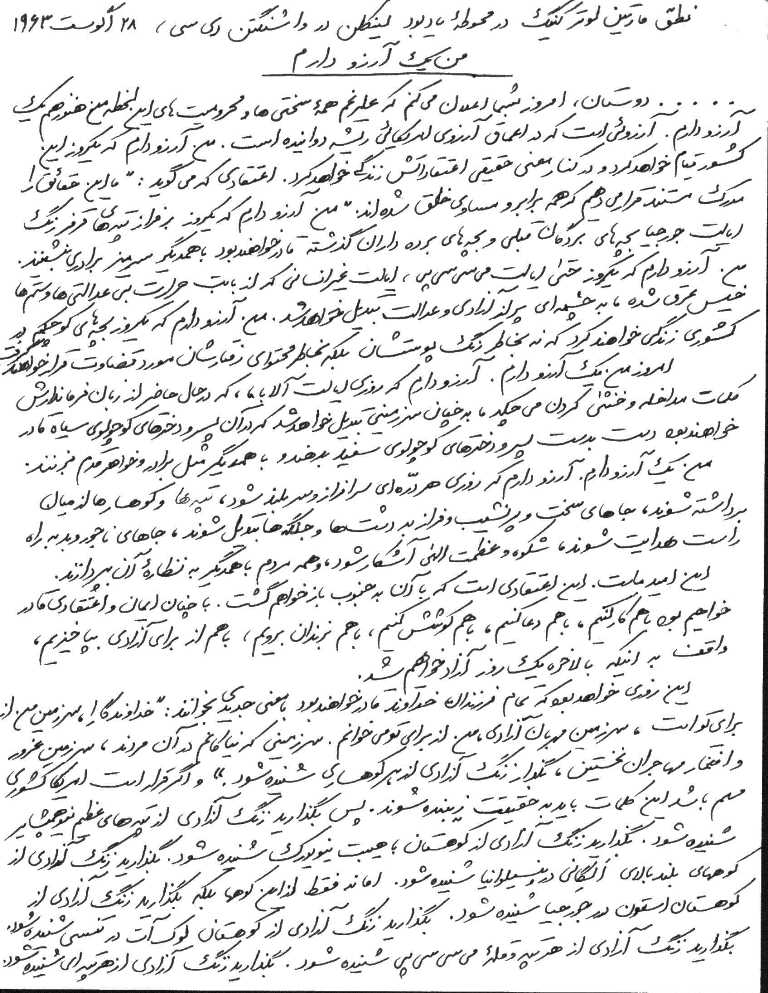 نطق مارتین لوتر کینگ در محوطهٔ یادبود لینکلن در واشنگتن دی سی، ۲۸ آگوست ۱۹۶۳
من یک آرزو دارم
..... دوستان، امروز بشما اعلان می‌کنم که علیرغم همهٔ سختی‌ها و محرومیت‌های این لحظه من هنوز هم یک
آرزو دارم. آرزوئی است که در اعماق آرزوی امریکائی ریشه دوانیده است. من آرزو دارم که یکروز این
کشور قیام خواهد کرد و در کنار معنی حقیقی اعتقاداتش زندگی خواهد کرد. اعتقادی که می‌گوید: "ما این حقائق را
مدرک مستند قرار می‌دهیم که همه برابر و مساوی خلق شده‌اند." من آرزو دارم که یکروز بر فراز تپه‌های قرمز رنگ
ایالت جورجیا بچه‌های بردگان قبلی و بچه‌های برده داران گذشته قادر خواهند بود با همدیگر سر میز برادری بنشینند.
من آرزو دارم که یکروز حتی ایالت می‌سی‌سی‌پی، ایالت غیرانسانی که از بابت حرارت بی عدالتی‌ها و ستم‌ها
خیس عرق شده، به چشمه‌ای پر از آزادی و عدالت تبدیل خواهد شد. من آرزو دارم که یکروز بچه‌های کوچکم در
کشوری زندگی خواهند کرد که نه بخاطر رنگ پوستشان بلکه بخاطر محتوای رفتارشان مورد قضاوت قرار خواهند گرفت
امروز من یک آرزو دارم. آرزو دارم که روزی ایالت آلاباما، که در حال حاضر از زبان فرماندارش
کلمات مداخله و خنثی کردن می‌چکد، به چنان سرزمینی تبدیل خواهد شد که در آن پسر و دخترهای کوچولوی سیاه قادر
خواهند بود دست بدست پسر و دخترهای کوچولوی سفید بدهند و با همدیگر مثل برادر و خواهر قدم بزنند.
من یک آرزو دارم. آرزو دارم که روزی هر درّه‌ای سرافراز و سربلند شود، تپه‌ها و کوهسارها از میان
برداشته شوند، جاهای سخت و پر نشیب و فراز به دشت‌ها و جلگه‌ها تبدیل شوند، جاهای ناجور و بد به راه
راست هدایت شوند، شکوه و عظمت الهی آشکار شود، و همه مردم با همدیگر به نظارهٔ آن بپردازند.
این امید ماست. این اعتقادی است که با آن به جنوب باز خواهم گشت. با چنان ایمان و اعتقادی قادر
خواهیم بود با هم کار کنیم، با هم دعا کنیم، با هم کوشش کنیم، با هم بزندان برویم، با هم از برای آزادی بپا خیزیم،
واقف به اینکه بالاخره یک روز آزاد خواهیم شد.
این روزی خواهد بود که تمام فرزندان خداوند قادر خواهند بود با معنی جدیدی بخوانند: "خداوندگارا، سرزمین من از
برای تو است، سرزمین مهربان آزادی، من از برای تو می‌خوانم. سرزمینی که نیاکانم در آن مردند، سرزمین غرور
و افتخار مهاجران نخستین، بگذار زنگ آزادی از هر کوهساری شنیده شود." و اگر قرار است امریکا کشوری
مهم باشد این کلمات باید به حقیقت زیبنده شوند. پس بگذارید زنگ آزادی از تپه‌های عظیم نیوهمپشایر
شنیده شود. بگذارید زنگ آزادی از کوهستان با هیبت نیویورک شنیده شود. بگذارید زنگ آزادی از
کوههای بلند بالای آلگانی در پنسیلوانیا شنیده شود. اما نه فقط از این کوهها بلکه بگذارید زنگ آزادی از
کوهستان استون در جورجیا شنیده شود. بگذارید زنگ آزادی از کوهستان لوک‌آت در تنسی شنیده شود.
بگذارید زنگ آزادی از هر تپه و قلهٔ می‌سی‌سی‌پی شنیده شود. بگذارید زنگ آزادی از هر تپه‌ای شنیده شود.